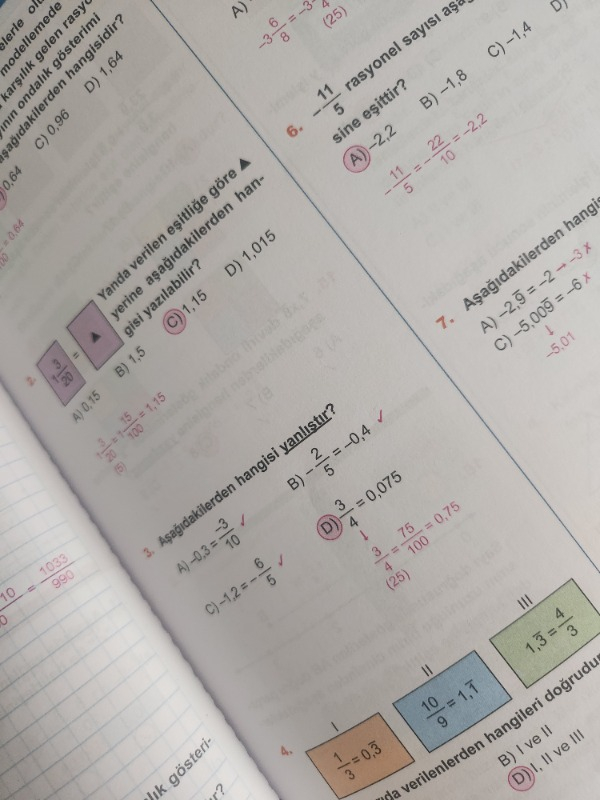 modellemede
karşılık gelen rasyo
yının ondalık gösterimi
aşağıdakilerden hangisidir?
0,64
C) 0,96
D) 1,64
2.
1 3/20 = ▲
Yanda verilen eşitliğe göre ▲
yerine aşağıdakilerden han-
gisi yazılabilir?
A) 0,15
B) 1,5
C) 1,15
D) 1,015
1 3/20 = 1 15/100 = 1,15
(5)
3. Aşağıdakilerden hangisi yanlıştır?
A) -0,3 = -3/10 ✓
B) -2/5 = -0,4 ✓
C) -1,2 = -6/5 ✓
D) 3/4 = 0,075
↓
3/4 = 75/100 = 0,75
(25)
4.
I
1/3 = 0,3̅
II
10/9 = 1,1̅
III
1,3̅ = 4/3
verilenlerden hangileri doğrudur
B) I ve II
D) I, II ve III
A)
-3 6/8 = -3
(25)
6. -11/5 rasyonel sayısı aşağ
sine eşittir?
A) -2,2
B) -1,8
C) -1,4
D)
-11/5 = -22/10 = -2,2
7. Aşağıdakilerden hangis
A) -2,9̅ = -2 → -3 x
C) -5,009̅ = -6 x
↓
-5,01
10
= 1033/990
lık gösteri-